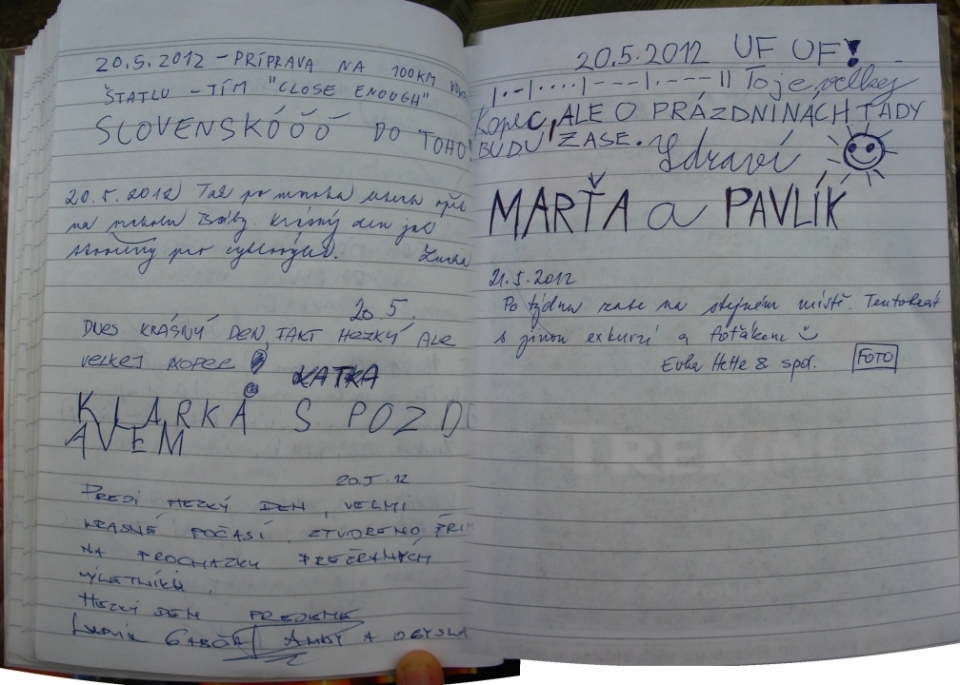 20.5.2012 - PRÍPRAVA NA 100KM
ŠTATLU - TÍM "CLOSE ENOUGH"
SLOVENSKÓÓÓ DO TOHO!
20.5.2012 Tak po mnoha letech opět
na vrcholu Báby. Krásný den jak
stvořený pro cyklovýlet.
20.5.
DNES KRÁSNÝ DEN TAKT HEZKÝ ALE
VELKEJ KOPEC
KATKA
KLARKA S POZD
AVEM
20.5.12
HEZKÝ DEN, VELMI
KRASNÉ POČASÍ, STVOŘENO
NA PROCHAZKY
VÝLETNÍKŮ.
HEZKÝ DEN
A
20.5.2012 UF UF!
|·-|····|---|·---|| To je velkej
kopec, ALE O PRÁZDNINÁCH TADY
BUDU ZASE. Zdraví
MARŤA a PAVLÍK
21.5.2012
Po týdnu zase na stejném místě. Tentokrát
s jinou exkurzí a foťákem
Evka & spol. FOTO